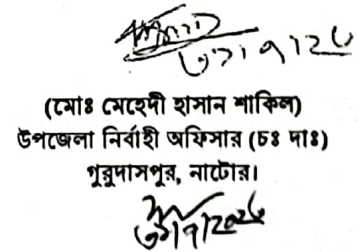 (মোঃ মেহেদী হাসান শাকিল)
উপজেলা নির্বাহী অফিসার (চঃ দাঃ)
গুরুদাসপুর, নাটোর।